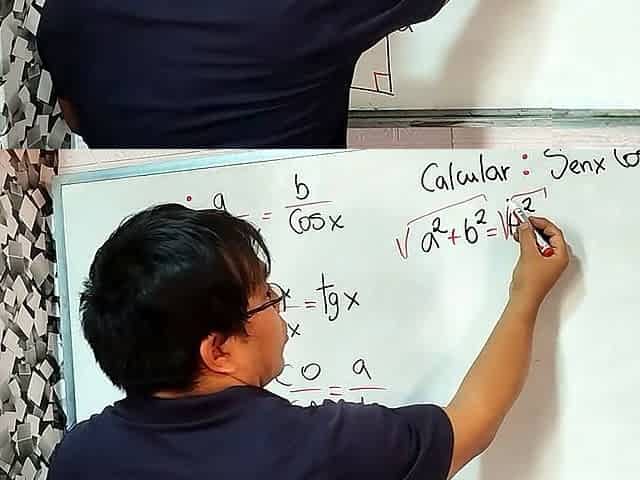 a
Calcular : Senx Cos
a = b
Cosx
√a²+b²=√h²
x = tgx
x
CO = a